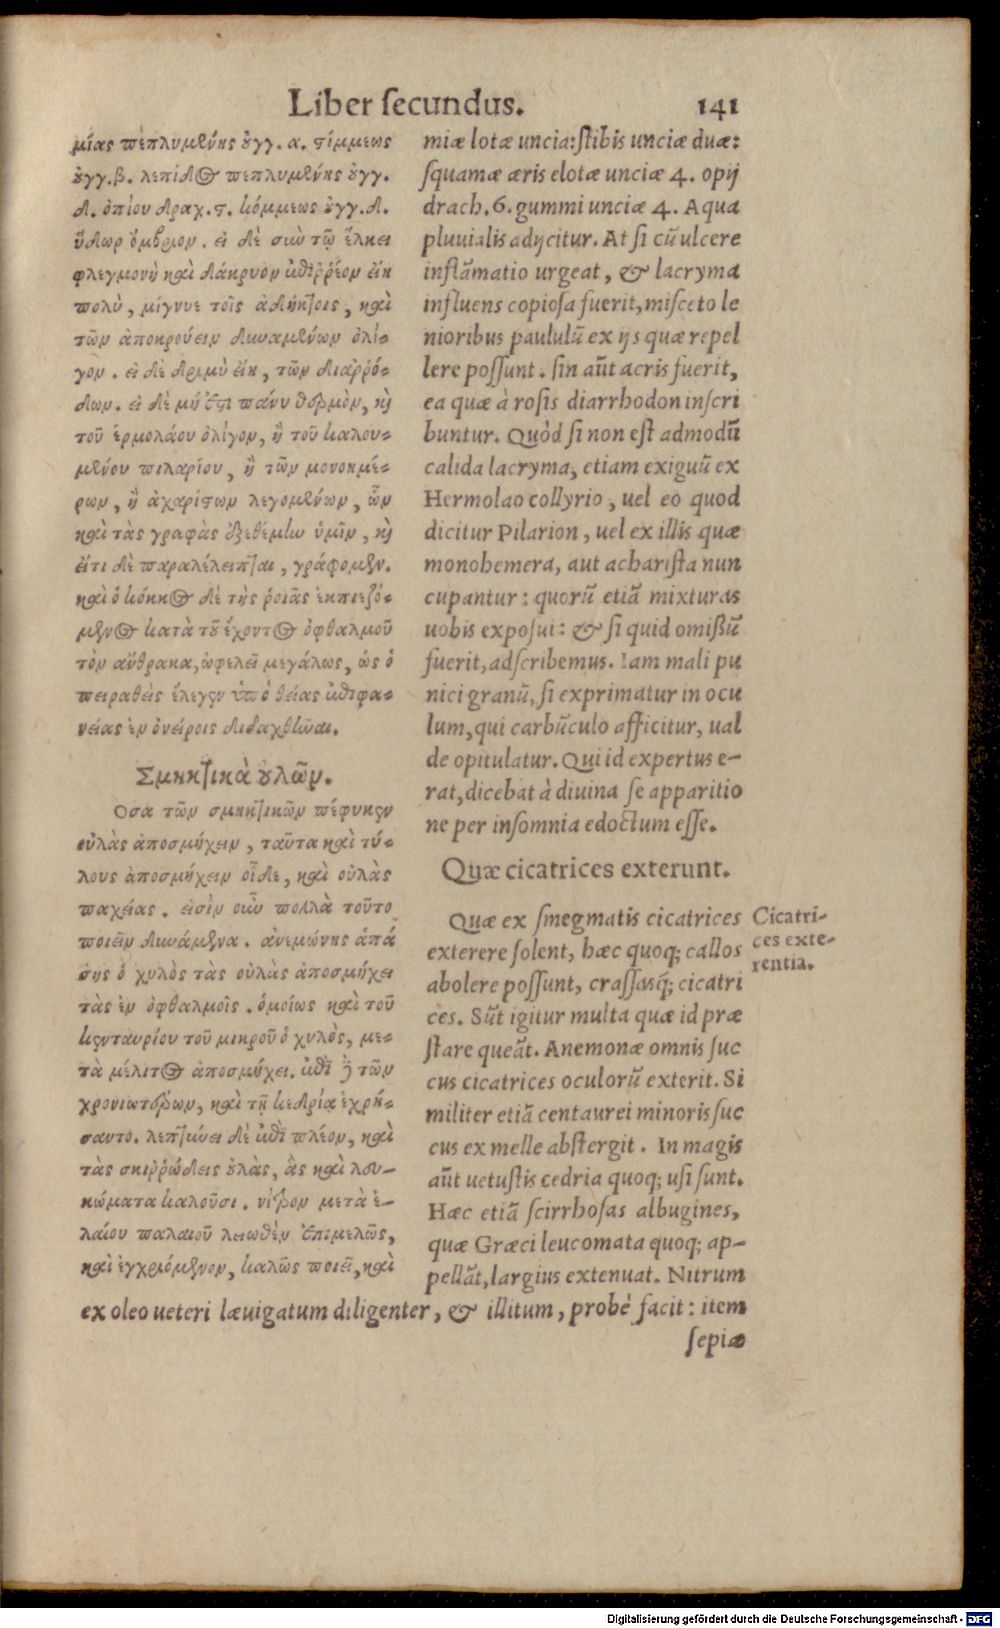 Liber ſecundus. 141
μίας πεπλυμένης ουγγ. α. στίμμεως
ουγγ. β. λεπίδος πεπλυμένης ουγγ.
δ. ὀπίου δραχ. ϛ. κόμμεως ουγγ. δ.
ὕδωρ ὄμβριον. εἰ δὲ σὺν τῷ ἕλκει
φλεγμονὴ καὶ δάκρυον ἐπιῤῥέον εἴη
πολὺ, μίγνυε τοῖς ἀδήκτοις, καὶ
τῶν ἀποκρούειν δυναμένων ὀλί-
γον. εἰ δὲ δριμὺ εἴη, τῶν διαῤῥό-
δων. εἰ δὲ μή ἐστι πάνυ θερμὸν, καὶ
τοῦ ἑρμολάου ὀλίγον, ἢ τοῦ καλου-
μένου πιλαρίου, ἢ τῶν μονοημέ-
ρων, ἢ ἀχαρίστων λεγομένων, ὧν
καὶ τὰς γραφὰς ἐξεθέμην ὑμῖν, καὶ
εἴτι δὲ παραλέλειπται, γράφομεν.
καὶ ὁ κόκκος δὲ τῆς ῥοιᾶς ἐκπιεζό-
μενος κατὰ τοῦ ἔχοντος ὀφθαλμοῦ
τὸν ἄνθρακα, ὠφελεῖ μεγάλως, ὡς ὁ
πειραθεὶς ἔλεγεν ὑπὸ θείας ἐπιφα-
νείας ἐν ὀνείροις διδαχθῆναι.
Σμηκτικὰ οὐλῶν.
Οσα τῶν σμηκτικῶν πέφυκεν
οὐλὰς ἀποσμήχειν, ταῦτα καὶ τύ-
λους ἀποσμήχειν οἶδε, καὶ οὐλὰς
παχείας. εἰσὶν οὖν πολλὰ τοῦτο
ποιεῖν δυνάμενα. ἀνεμώνης ἁπά
σης ὁ χυλὸς τὰς οὐλὰς ἀποσμήχει
τὰς ἐν ὀφθαλμοῖς. ὁμοίως καὶ τοῦ
κενταυρίου τοῦ μικροῦ ὁ χυλὸς, με-
τὰ μέλιτος ἀποσμήχει. ἐπὶ δὲ τῶν
χρονιωτέρων, καὶ τῇ κεδρίᾳ ἐχρή-
σαντο. λεπτύνει δὲ ἐπὶ πλέον, καὶ
τὰς σκιῤῥώδεις οὐλὰς, ἃς καὶ λευ-
κώματα καλοῦσι. νίτρον μετὰ ἐ-
λαίου παλαιοῦ λειωθὲν ἐπιμελῶς,
καὶ ἐγχριόμενον, καλῶς ποιεῖ, καὶ
miæ lotæ uncia: ſtibis unciæ duæ:
ſquamæ æris elotæ unciæ 4. opij
drach. 6. gummi unciæ 4. Aqua
pluuialis adijcitur. At ſi cũ ulcere
inflãmatio urgeat, & lacryma
influens copioſa fuerit, miſceto le
nioribus paululũ ex ijs quæ repel
lere poſſunt. ſin aũt acris fuerit,
ea quæ à roſis diarrhodon inſcri
buntur. Quòd ſi non eſt admodũ
calida lacryma, etiam exiguũ ex
Hermolao collyrio, uel eo quod
dicitur Pilarion, uel ex illis quæ
monohemera, aut achariſta nun
cupantur: quorũ etiã mixturas
uobis expoſui: & ſi quid omißũ
fuerit, adſcribemus. Iam mali pu
nici granũ, ſi exprimatur in ocu
lum, qui carbũculo afficitur, ual
de opitulatur. Qui id expertus e-
rat, dicebat à diuina ſe apparitio
ne per inſomnia edoctum eſſe.
Quæ cicatrices exterunt.
Quæ ex ſmegmatis cicatrices
exterere ſolent, hæc quoq; callos
abolere poſſunt, craſſasq́; cicatri
ces. Sũt igitur multa quæ id præ
ſtare queãt. Anemonæ omnis ſuc
cus cicatrices oculorũ exterit. Si
militer etiã centaurei minoris ſuc
cus ex melle abſtergit. In magis
aũt uetuſtis cedria quoq; uſi ſunt.
Hæc etiã ſcirrhoſas albugines,
quæ Græci leucomata quoq; ap-
pellãt, largius extenuat. Nitrum
Cicatri-
ces exte-
rentia.
ex oleo ueteri læuigatum diligenter, & illitum, probè facit: item
ſepiæ
Digitalisierung gefördert durch die Deutsche Forschungsgemeinschaft - DFG